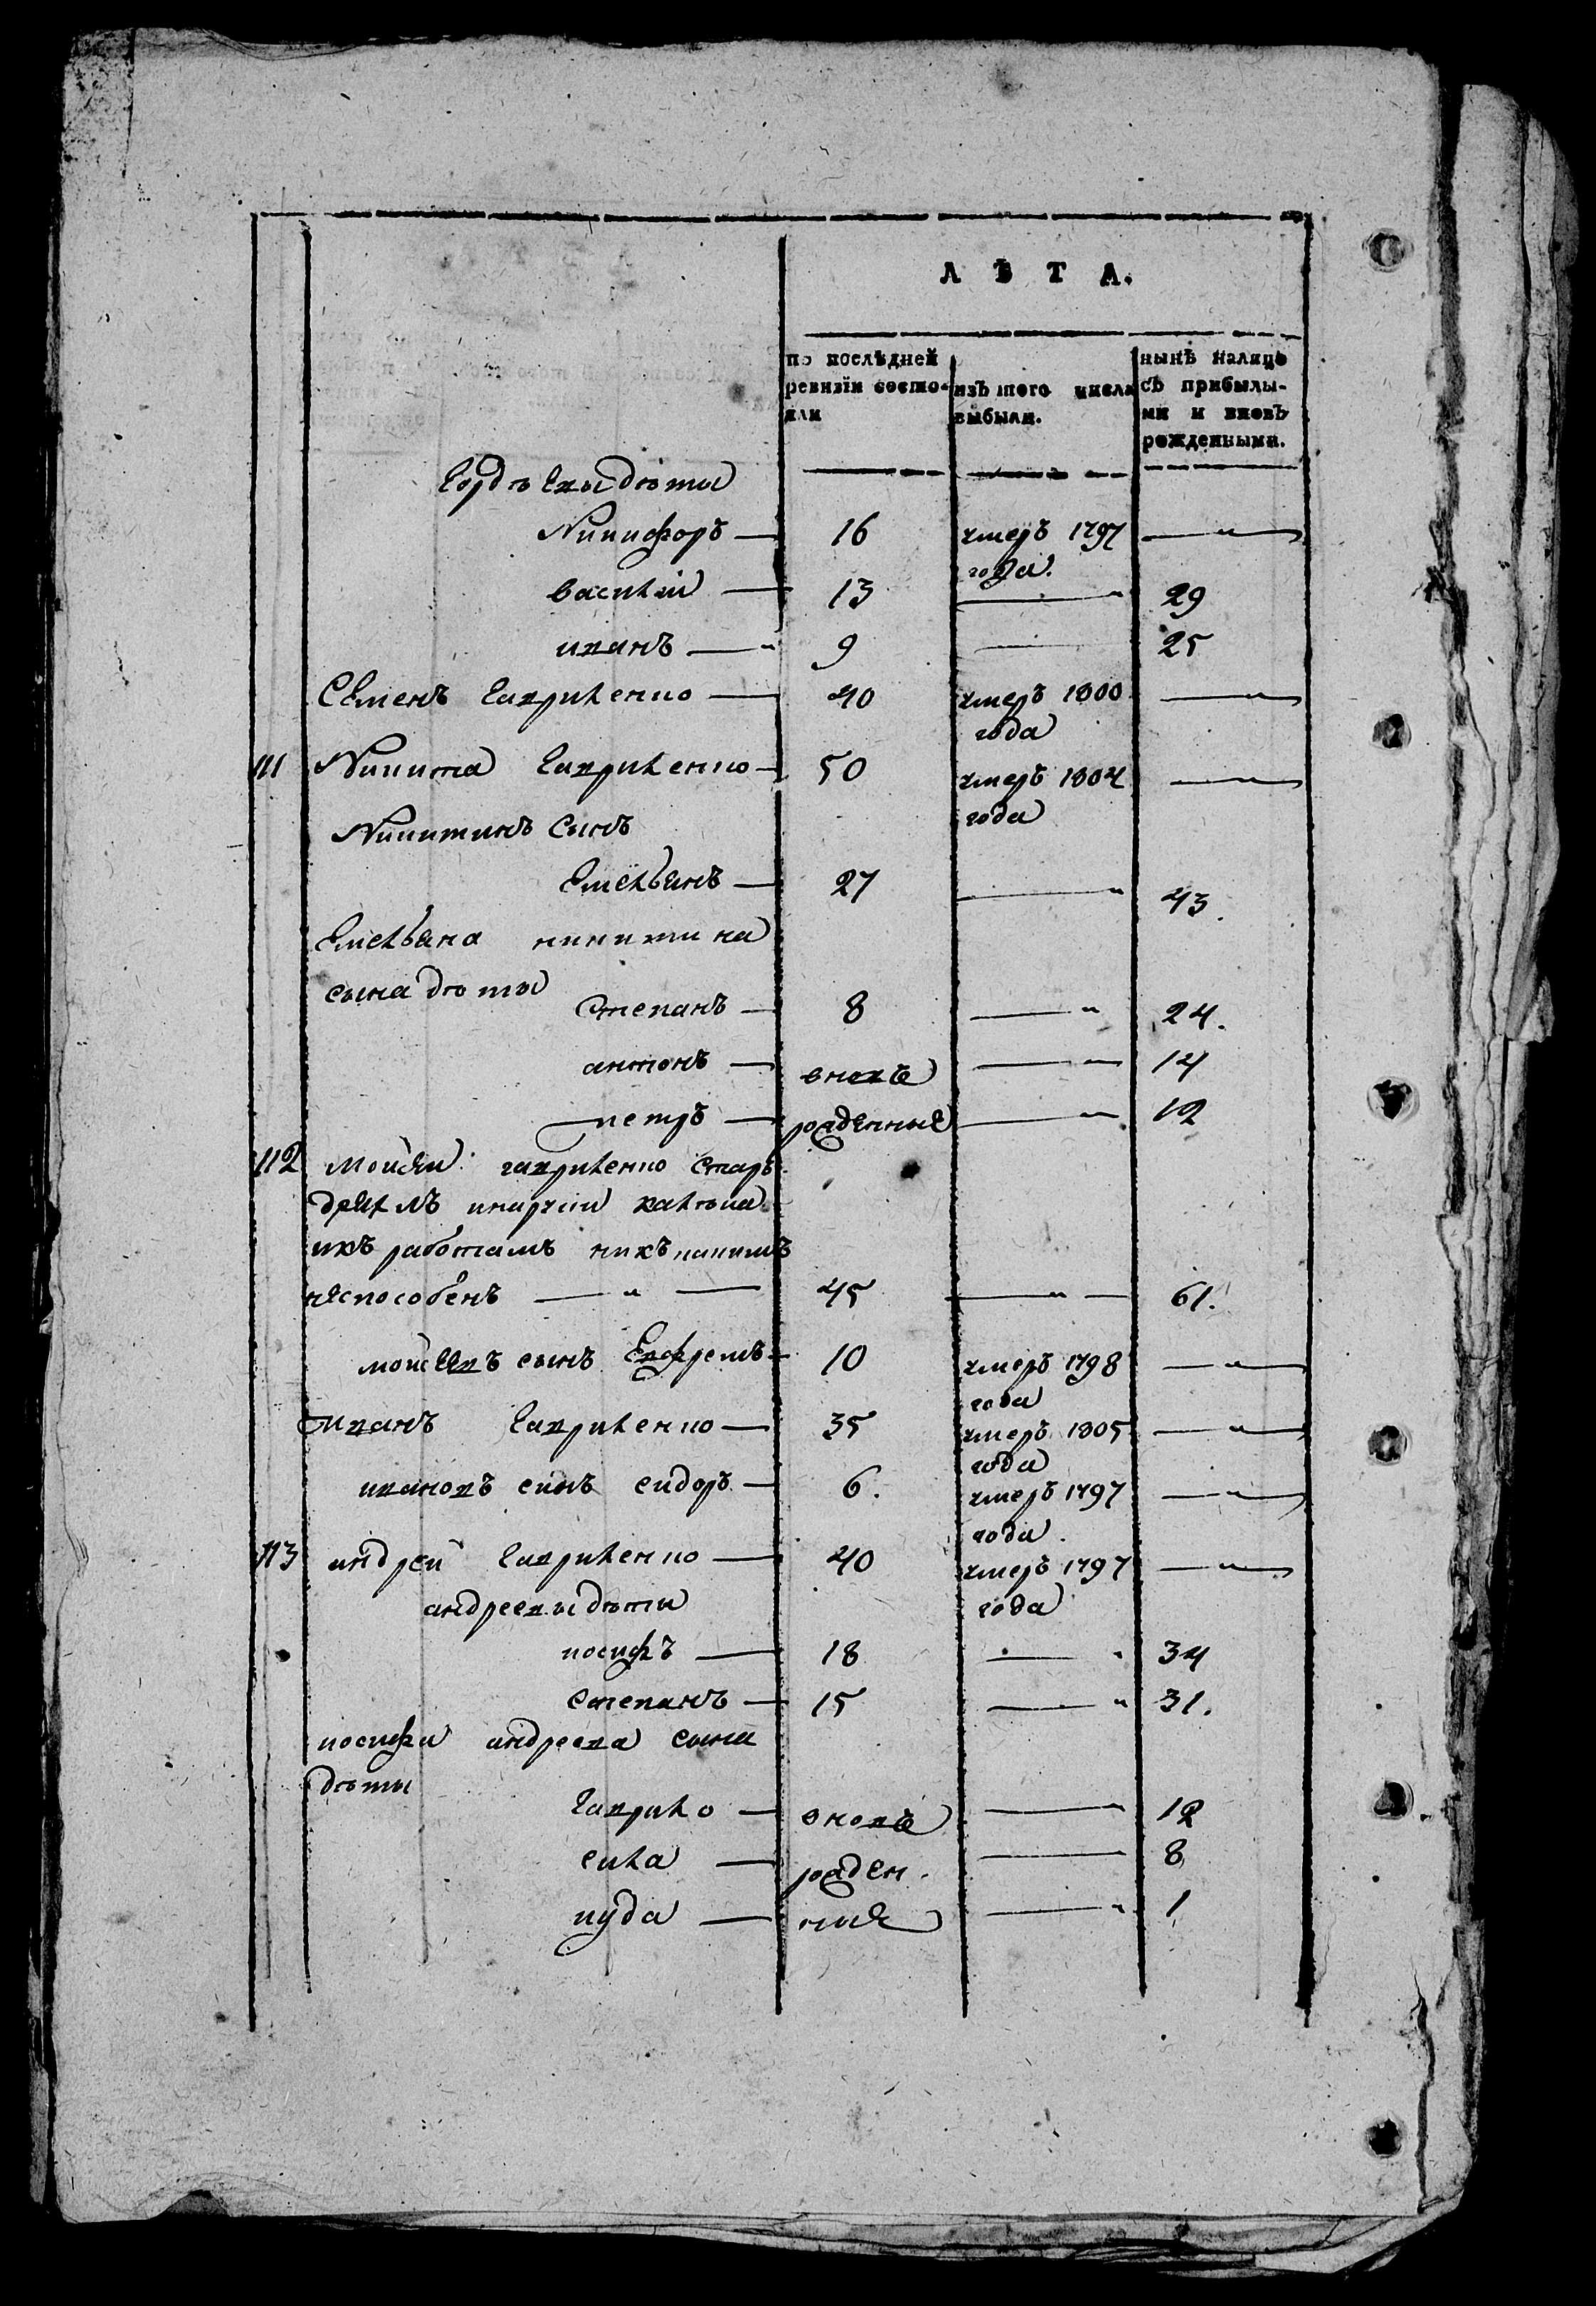 ЛѢТА.
по послѣдней ревизіи состояли
изъ того числа выбыли.
нынѣ налицо съ прибылыми и вновь рожденными.
Гордѣевы дѣти
Никифоръ — 16 умеръ 1797 года. — „ —
василій — 13 — „ 29
иванъ — „ 9 — 25
Семенъ Гавриленко — 40 умеръ 1800 года — „ —
111 Никита Гавриленко — 50 умеръ 1804 года — „ —
Никитинъ Сынъ
Емельянъ — 27 — „ 43.
Емельяна никитина
сына дѣты
Степанъ — 8 — „ 24.
антонъ — вновь — „ 14
петръ — рожденные — „ 12
112 Мойсей гавриленко старъ
дряхлъ
ихъ работамъ
неспособенъ — „ — 45 — „ — 61.
мойсеевъ сынъ Ефремъ — 10 умеръ 1798 года — „ —
Иванъ Гавриленко — 35 умеръ 1805 года — „ —
ивановъ синъ сидоръ — 6. умеръ 1797 года. — „ —
113 андрей Гавриленко — 40 умеръ 1797 года — „ —
андреевы дѣти
иосифъ — 18 — „ 34
степанъ — 15 — „ 31.
иосифа андреева сына
дѣты
Гаврило — вновь — „ 12
сила — рожден. — 8
иуда — ные — „ 1